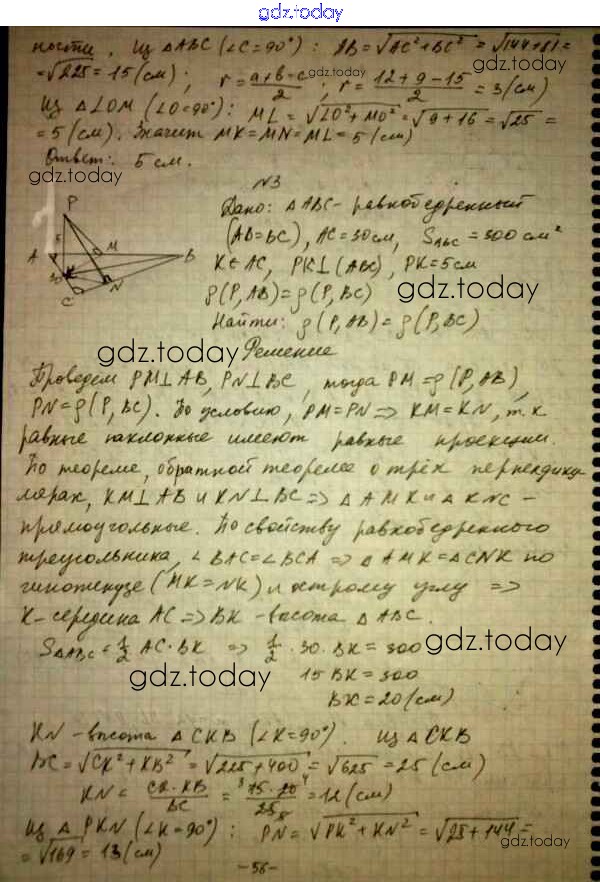 gdz.today
ности. Из ΔABC (∠C=90°): AB = √AC²+BC² = √144+81 =
= √225 = 15 (см); r = a+b-c/2; r = 12+9-15/2 = 3 (см)
gdz.today
Из ΔLOM (∠O=90°): ML = √LO²+MO² = √9+16 = √25 =
= 5 (см). Значит MK=MN=ML=5 (см)
Ответ: 5 см.
gdz.today
N3
Дано: ΔABC - равнобедренный
(AB=BC), AC=30см, SABC=300 см²
K∈AC, PK⊥(ABC), PK=5см
ρ(P,AB)=ρ(P,BC)
gdz.today
Найти: ρ(P,AB)=ρ(P,BC)
P
5
A
M
B
30
K
N
C
gdz.today
gdz.today
Решение
Проведем PM⊥AB, PN⊥BC, тогда PM=ρ(P,AB),
PN=ρ(P,BC). По условию, PM=PN => KM=KN, т.к
равные наклонные имеют равные проекции.
По теореме, обратной теореме о трёх перпендику
лярах, KM⊥AB и KN⊥BC => ΔAMK и ΔKNC -
прямоугольные. По свойству равнобедренного
треугольника, ∠BAC=∠BCA => ΔAMK=ΔCNK по
гипотенузе (MK=NK) и острому углу =>
K-середина AC => BK - высота ΔABC.
SΔABC = 1/2 AC·BK => 1/2·30·BK=300
gdz.today
15BK=300
gdz.today
BK=20(см)
KN - высота ΔCKB (∠K=90°). Из ΔCKB
BC = √CK²+KB² = √225+400 = √625 = 25 (см)
KN = CK·KB/BC = 15·20/25 = 12 (см)
Из ΔPKN (∠K=90°): PN = √PK²+KN² = √25+144 =
gdz.today
= √169 = 13 (см)
-56-